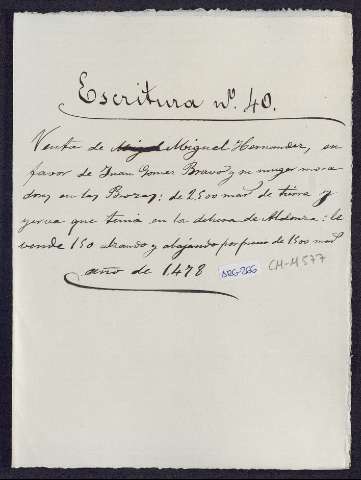 Escritura nº. 40.
Venta de Miguel Hernandez, en
favor de Juan Gomez Bravo y su muger mora
dores en las Brozas: de 2500 mars. de tierra y
yerva que tenia en la dehesa de : le
vende 150 alzando y abajando por precio de 1500 mars
año de 1478
CM-M577